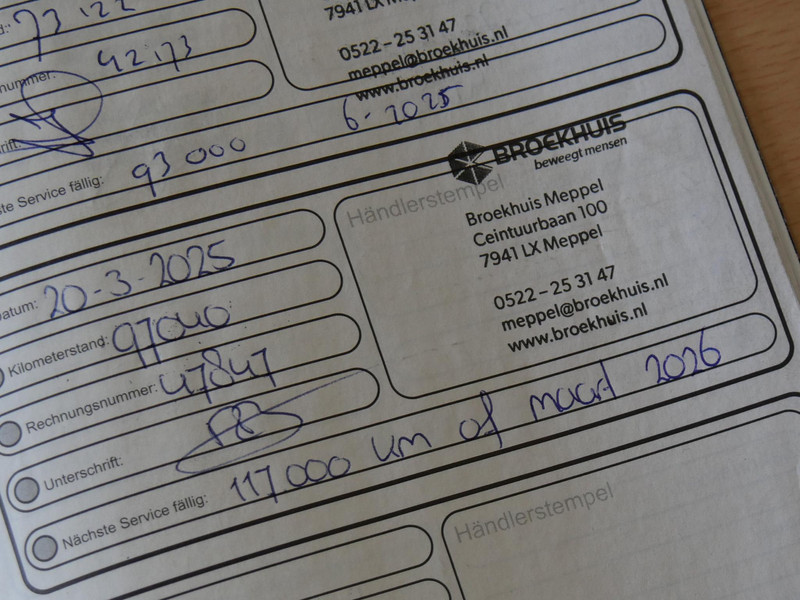 73122
nummer:
42173
7941 LX Meppel
0522 – 25 31 47
meppel@broekhuis.nl
www.broekhuis.nl
te Service fällig: 93 000 6 - 2025
BROEKHUIS
beweegt mensen
Händlerstempel
Broekhuis Meppel
Ceintuurbaan 100
7941 LX Meppel
0522 – 25 31 47
meppel@broekhuis.nl
www.broekhuis.nl
atum: 20-3-2025
Kilometerstand: 97040
Rechnungsnummer: 47847
Unterschrift:
Nächste Service fällig: 117.000 km of maart 2026
Händlerstempel